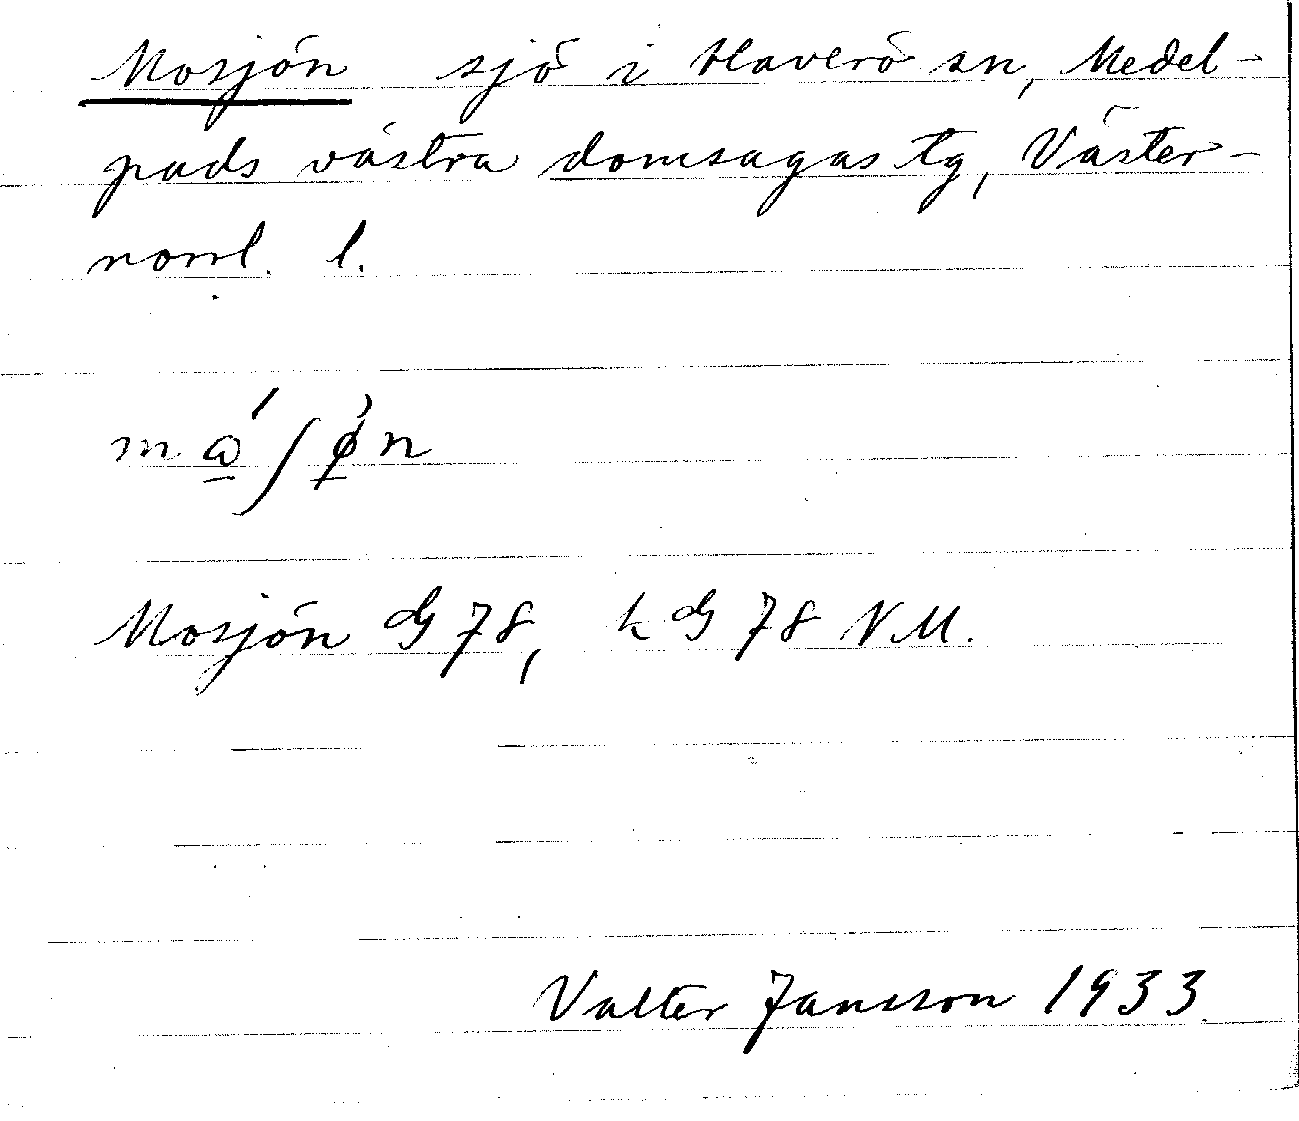 Mosjön sjö i Haverö sn, Medel-
pads västra domsagas tg, Väster-
norrl. l.
mɷ́ʃø̀n
Mosjön G 78, LG 78 N.M.
Valter Jansson 1933.